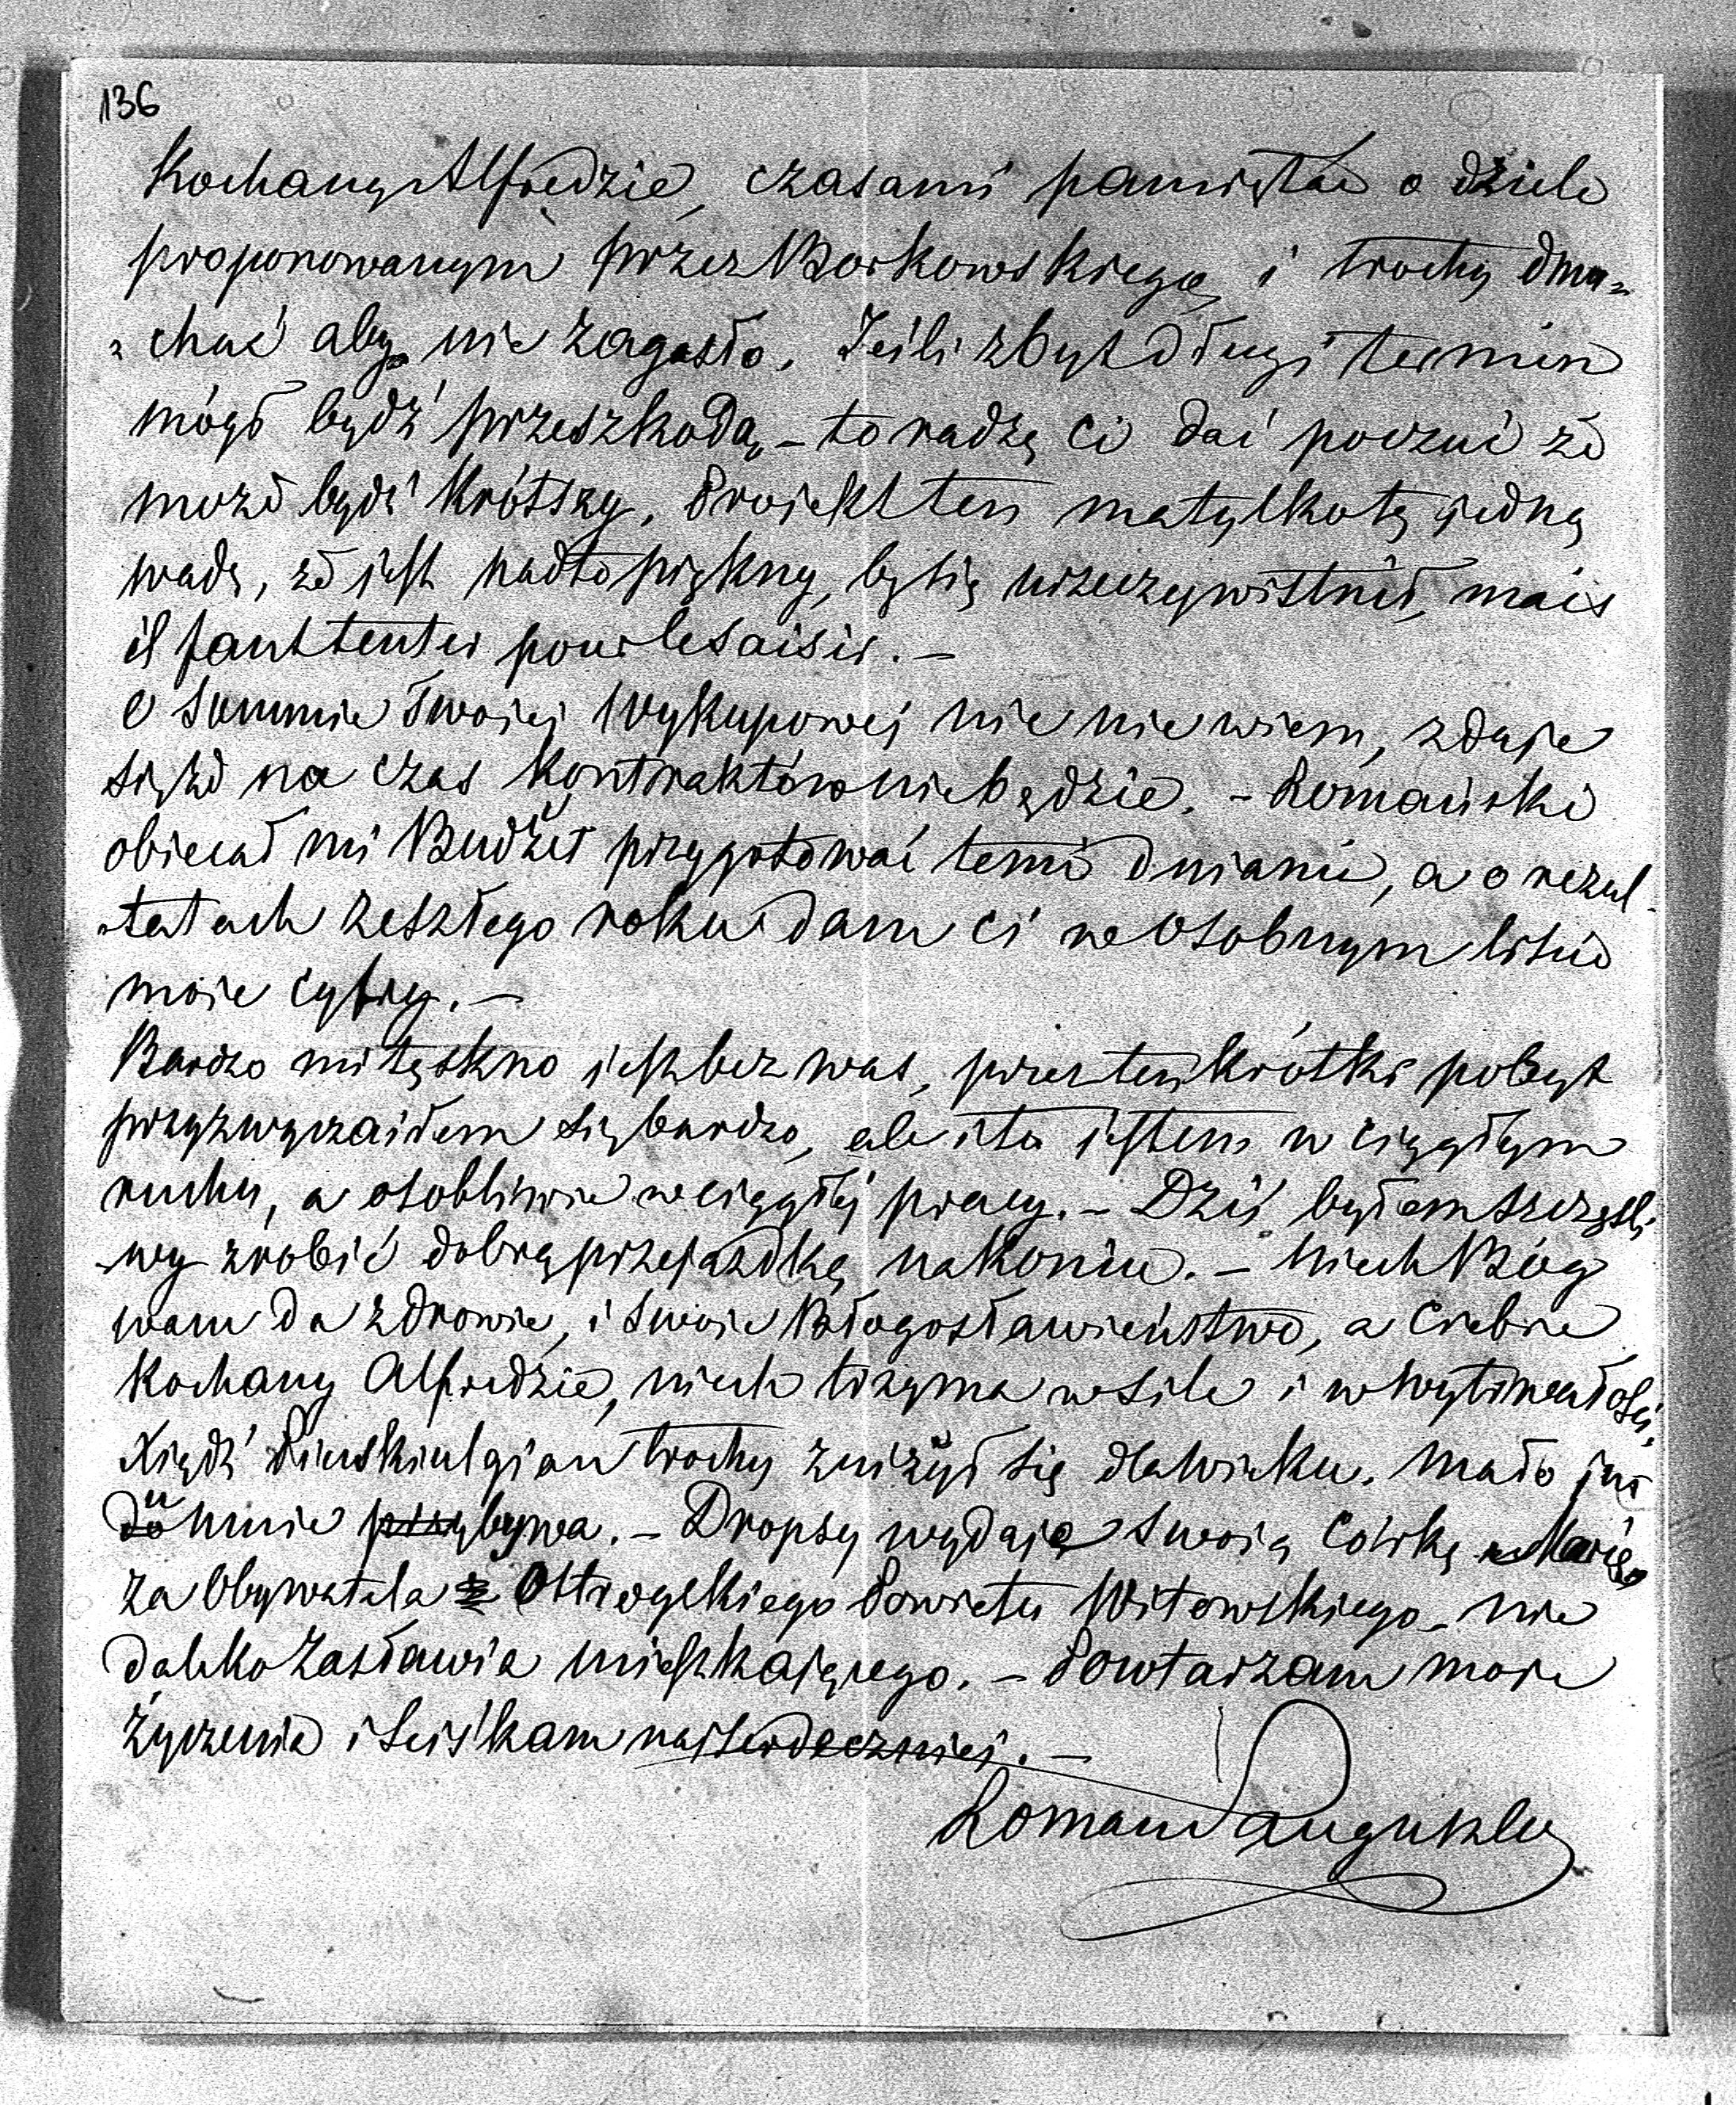 136
Kochany Alfredzie, czasami pamiętać o dziele
proponowanym przez Borkowskiego, i trochę dmu=
=chać aby nie zagasło. Jeśli zbyt długi termin
mógł bydź przeszkodą, – to radzę Ci dać poczuć że
może bydź krótszy. Projekt ten ma tylko tę jedną
wadę, że jest nadto piękny, by się urzeczywistnił, mais
il faut tenter pour le saisir. –
O Summie Twojej Wykupowej nic nie wiem, zdaje
się że na czas Kontraktów nie będzie. – Romański
obiecał mi Budżet przygotować temi dniami, a o rezul-
-tatach zeszłego roku dam ci w osobnym liście
moje cyfry. –
Bardzo mi tęskno jest bez was, przez ten krótki pobyt
przyzwyczaiłem się bardzo, ale i tu jestem w ciągłym
ruchu, a osobliwie w ciągłej pracy. – Dziś byłem szczęśli-
-wy zrobić dobrą przejażdżkę na koniu. – Niech Bóg
wam da zdrowie, i swoie Błogosławieństwo, a Ciebie
Kochany Alfredzie, niech trzyma w sile i w wytrwałości.
Xiądz trochę zniżył się dla wieku. Mało już
u mnie bywa. – Dropsy wydaje swoią Córkę Marię
za Obywatela Ostrogskiego Powiatu Witowskiego – nie
daleko Zasławia mieszkającego. – Powtarzam moje
życzenia i ściskam najserdeczniej. –
Roman Sanguszko